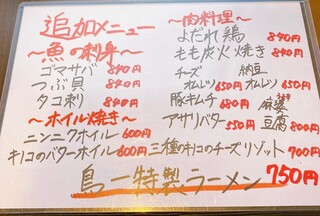 追加メニュー
〜魚の刺身〜
ゴマサバ 840円
つぶ貝 840円
タコ刺 840円
〜ホイル焼き〜
ニンニクホイル 600円
キノコのバターホイル 600円
〜肉料理〜
よだれ鶏 840円
もも炭火焼き 840円
チーズオムレツ 650円 納豆オムレツ 650円
豚キムチ 680円 麻婆豆腐 800円
アサリバター 550円
三種キノコのチーズリゾット 700円
鳥一特製ラーメン 750円